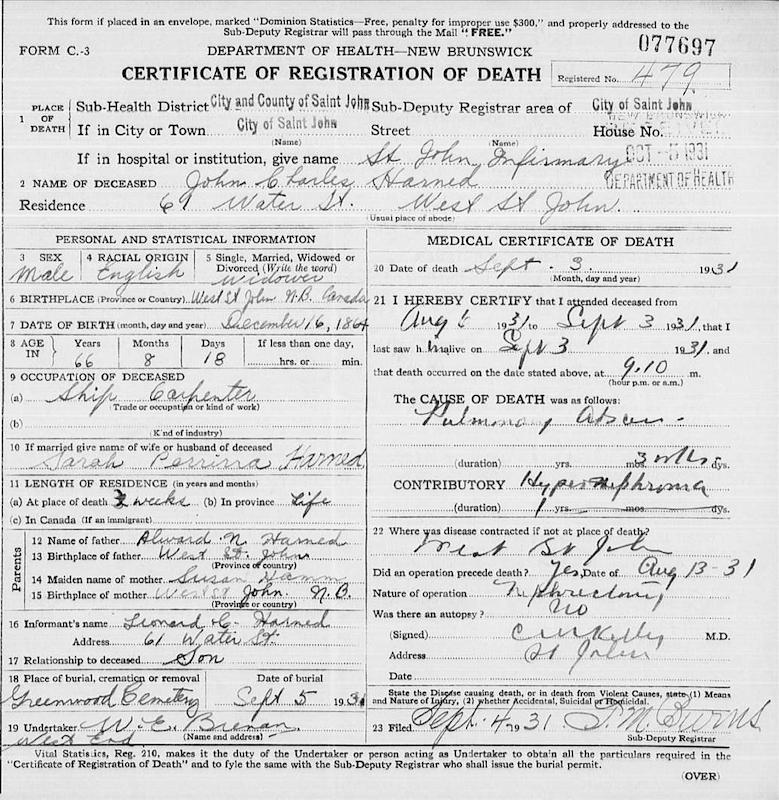 This form if placed in an envelope, marked "Dominion Statistics—Free, penalty for improper use $300," and properly addressed to the
Sub-Deputy Registrar will pass through the Mail "FREE."
FORM C.-3 DEPARTMENT OF HEALTH—NEW BRUNSWICK 077697
CERTIFICATE OF REGISTRATION OF DEATH Registered No. 479
1 PLACE OF DEATH Sub-Health District City and County of Saint John Sub-Deputy Registrar area of City of Saint John
If in City or Town City of Saint John Street House No. NEW BRUNSWICK
(Name) (Name)
If in hospital or institution, give name St. John Infirmary OCT -5 1931
2 NAME OF DECEASED John Charles Harned DEPARTMENT OF HEALTH
Residence 61 Water St. West St John.
(Usual place of abode)
PERSONAL AND STATISTICAL INFORMATION
3 SEX 4 RACIAL ORIGIN 5 Single, Married, Widowed or Divorced (Write the word)
Male English Widower
6 BIRTHPLACE (Province or Country) West St John N.B. Canada
7 DATE OF BIRTH (month, day and year) December 16, 1864
8 AGE IN Years Months Days If less than one day,
66 8 18 hrs. or min.
9 OCCUPATION OF DECEASED
(a) Ship Carpenter
(Trade or occupation or kind of work)
(b)
(Kind of industry)
10 If married give name of wife or husband of deceased
Sarah Harned
11 LENGTH OF RESIDENCE (in years and months)
(a) At place of death weeks (b) In province Life
(c) In Canada (If an immigrant)
Parents
12 Name of father Alward N. Harned
13 Birthplace of father West St. John
(Province or country)
14 Maiden name of mother Susan Hamm
15 Birthplace of mother West St John. N.B.
(Province or country)
16 Informant's name Leonard C. Harned
Address 61 Water St.
17 Relationship to deceased Son
18 Place of burial, cremation or removal Date of burial
Greenwood Cemetery Sept 5 1931
19 Undertaker W. E. Brenan
West End (Name and address)
MEDICAL CERTIFICATE OF DEATH
20 Date of death Sept. 3 1931
(Month, day and year)
21 I HEREBY CERTIFY that I attended deceased from
Aug 6 1931 to Sept 3 1931, that I
last saw him alive on Sept 3 1931, and
that death occurred on the date stated above, at 9.10 m.
(hour p.m. or a.m.)
The CAUSE OF DEATH was as follows:
Pulmonary
(duration) yrs. mos. 3 wks dys.
CONTRIBUTORY Hypernephroma
(duration) 1 yrs. mos. dys.
22 Where was disease contracted if not at place of death?
West St John
Did an operation precede death? Yes, Date of Aug 13-31
Nature of operation Nephrectomy
Was there an autopsy? No
(Signed) M.D.
Address St John
Date
State the Disease causing death, or in death from Violent Causes, state (1) Means
and Nature of Injury, (2) whether Accidental, Suicidal or Homicidal.
23 Filed Sept. 4 1931
Sub-Deputy Registrar
Vital Statistics, Reg. 210, makes it the duty of the Undertaker or person acting as Undertaker to obtain all the particulars required in the
"Certificate of Registration of Death" and to fyle the same with the Sub-Deputy Registrar who shall issue the burial permit.
(OVER)